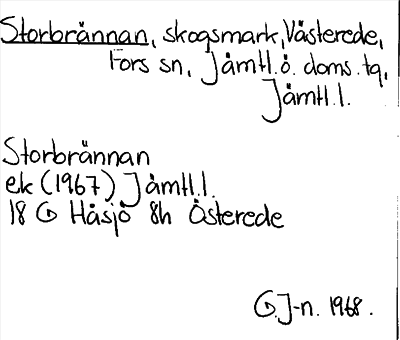 Storbrännan, skogsmark, Västerede,
Fors sn, Jämtl.ö. doms. tg,
Jämtl.l.
Storbrännan
ek (1967) Jämtl.l.
18 G Håsjö 8h Österede
G.J-n. 1968.